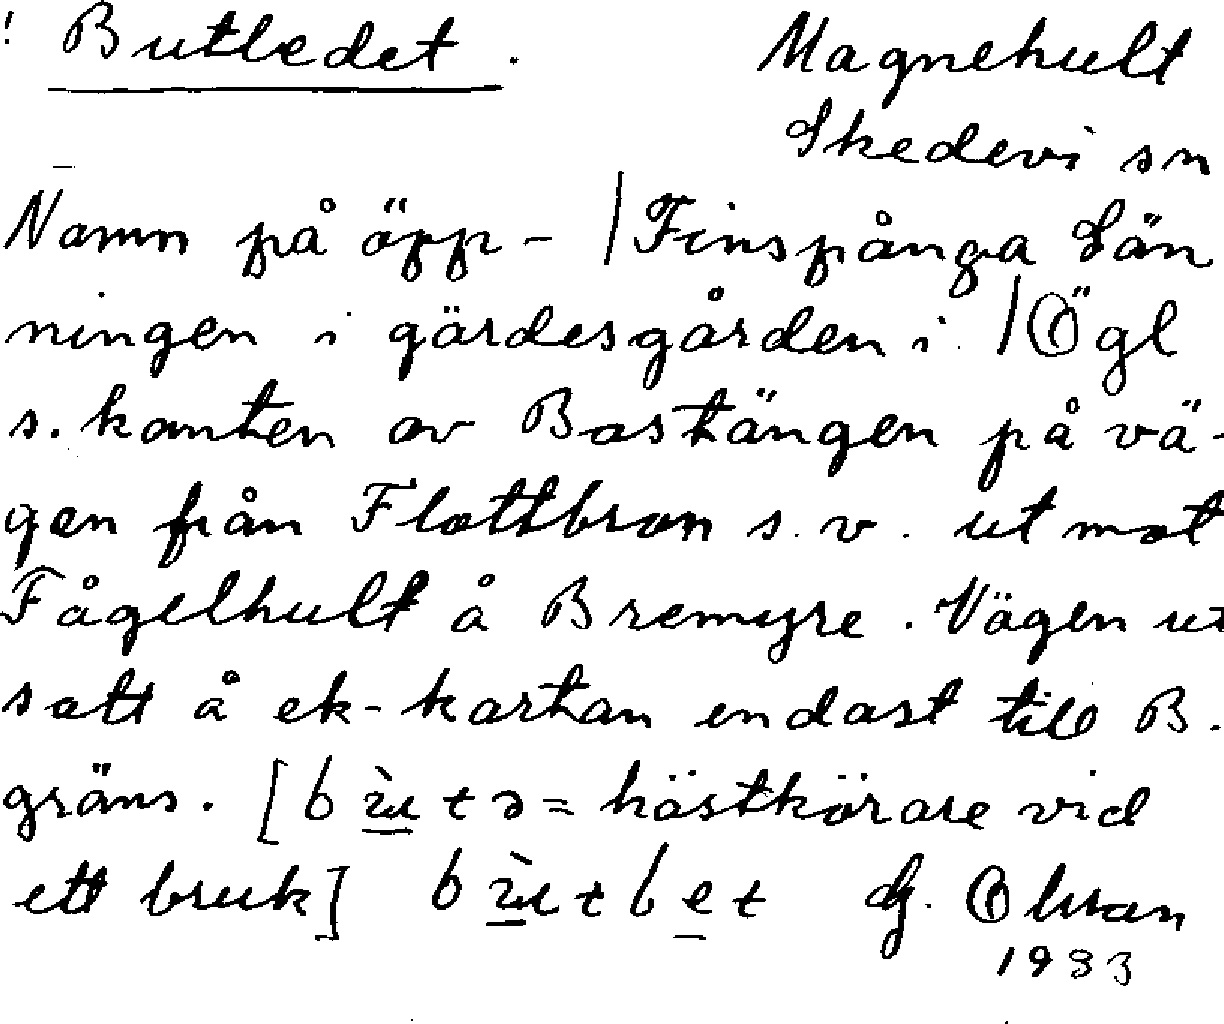 ! Butledet. Magnehult
Skedevi sn
Namn på öpp- | Finspånga Län
ningen i gärdesgården i | Ögl
s. kanten av Bastängen på vä-
gen från Flottbron s.v. ut mot
Fågelhult å Bremyre. Vägen ut
satt å ek-kartan endast till B.
gräns. [bùtə = hästkörare vid
ett bruk] bùtbet G. Olson
1933